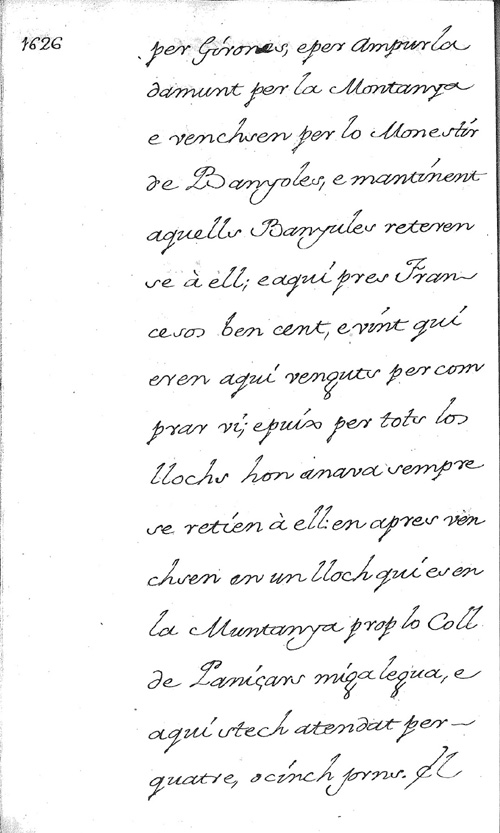 1626
per Girones, e per Ampurla
damunt per la Montanya
e venchsen per lo Monestir
de Banyoles, e mantinent
aquells Banyules reteren
se à ell; e aqui pres Fran-
cesos ben cent, e vint qui
eren aqui venguts per com
prar vi; e puix per tots los
llochs hon anava sempre
se retien à ell: en apres ven
chsen en un lloch qui es en
la Muntanya prop lo Coll
de Paniçars miga legua, e
aqui stech atendat per-
quatre, o cinch jorns. El